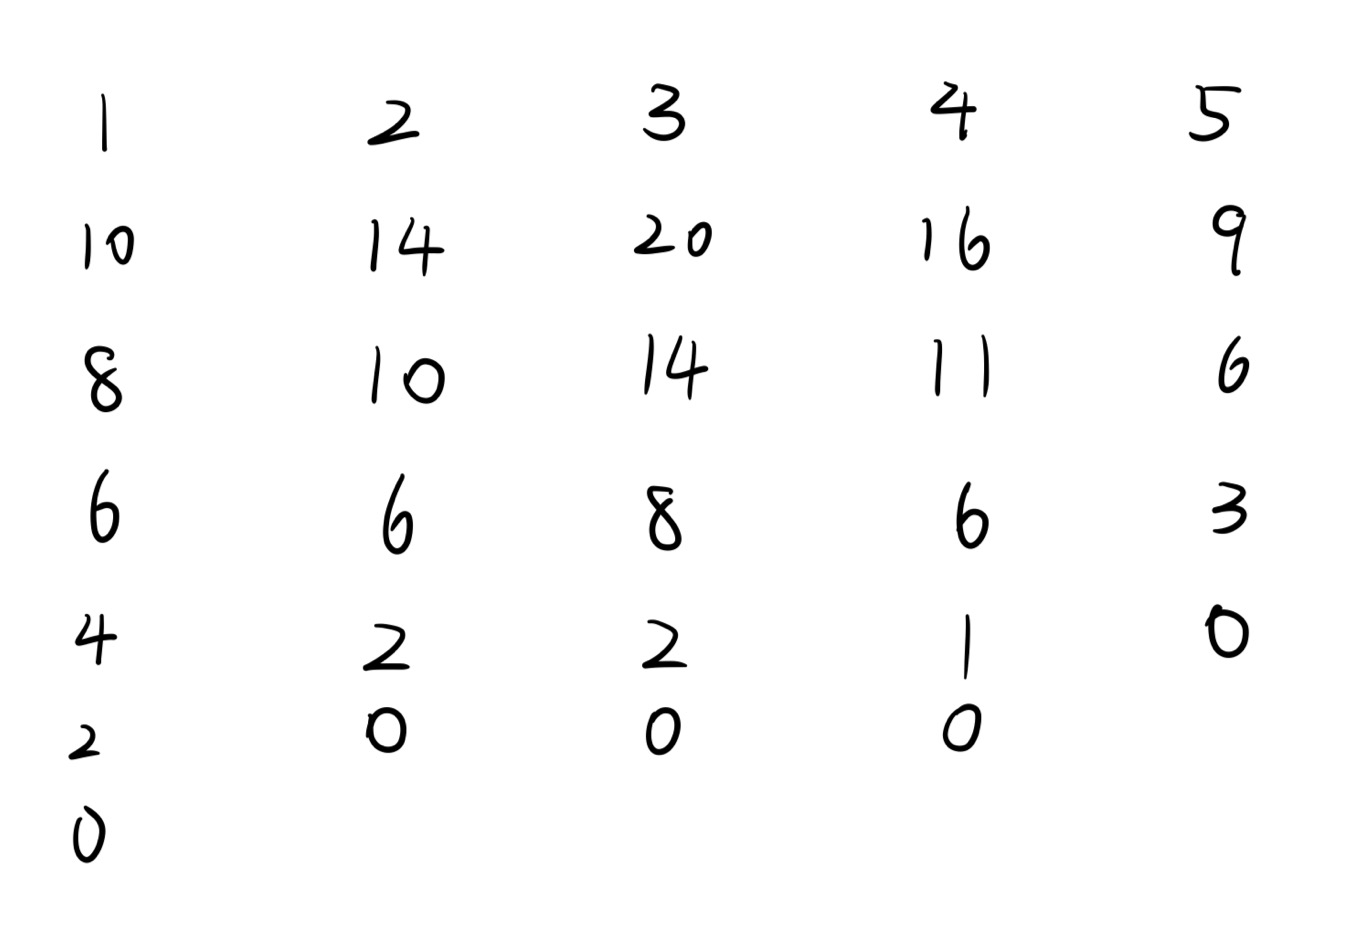 1 2 3 4 5
10 14 20 16 9
8 10 14 11 6
6 6 8 6 3
4 2 2 1 0
2 0 0 0
0